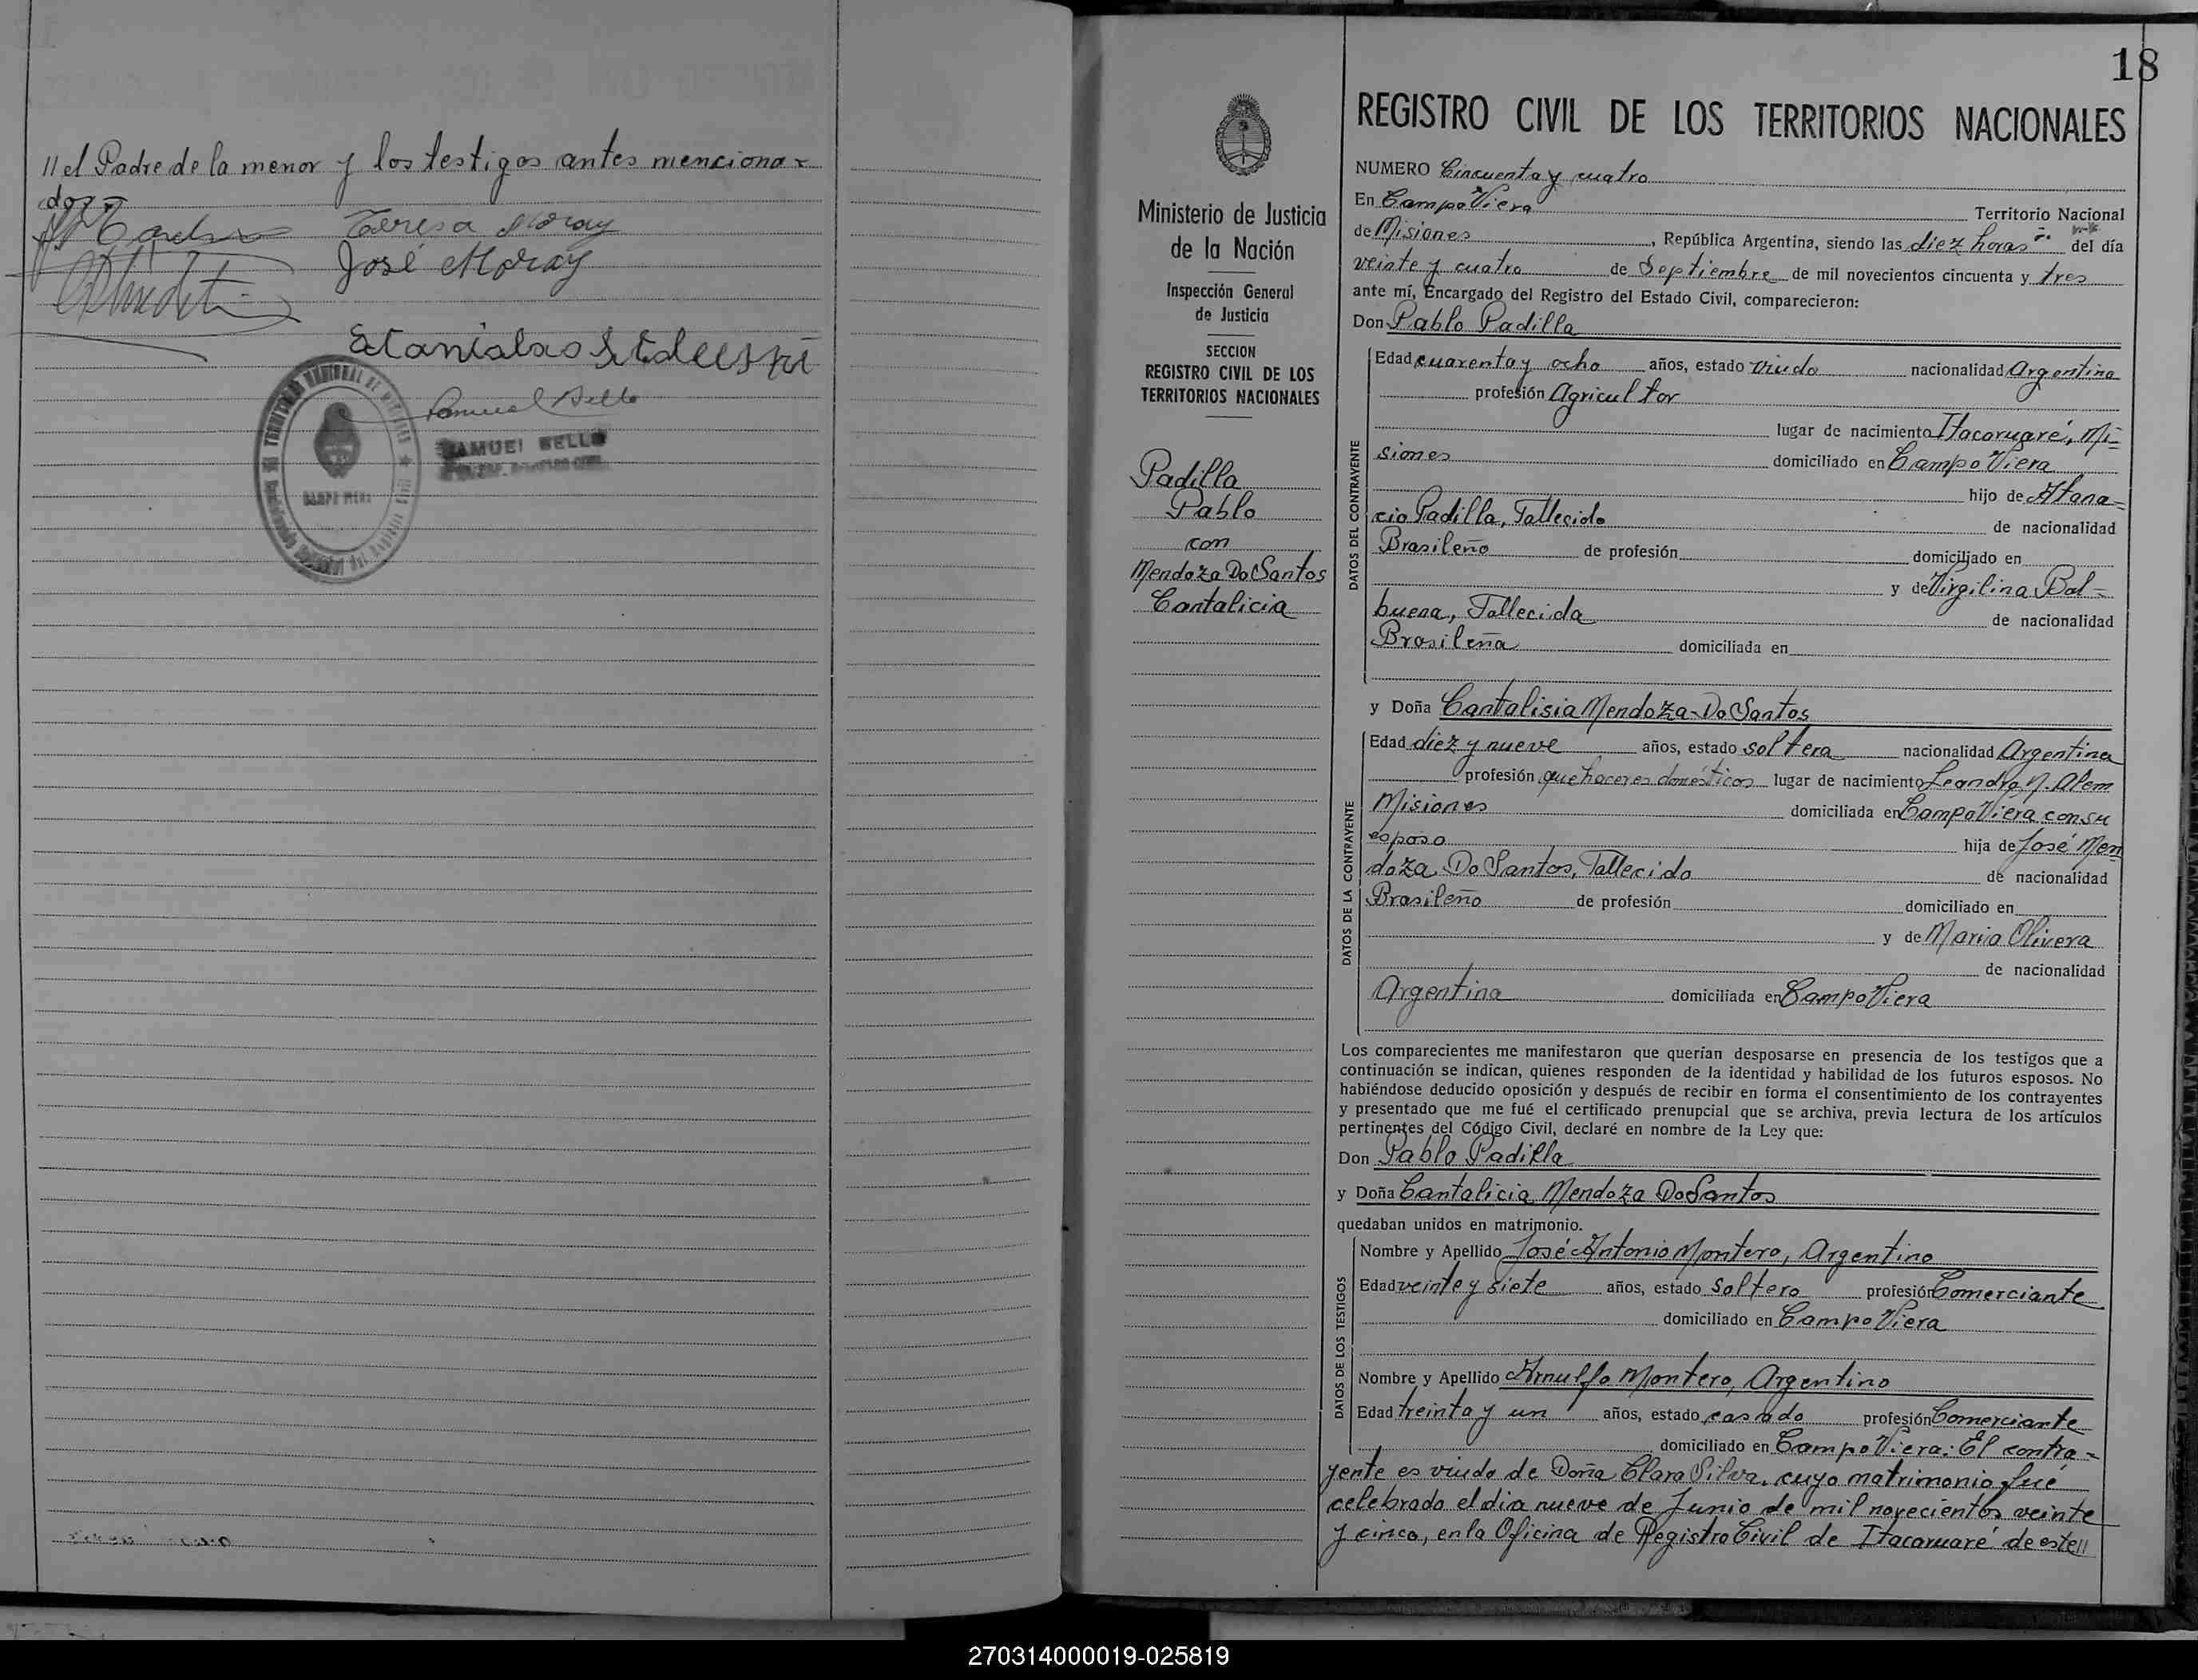 // el Padre de la menor y los testigos antes menciona-
dos
Teresa Moray
José Moray
Estanislao
Samuel Bello
SAMUEL BELLO
CAMPO VIERA
18
Ministerio de Justicia
de la Nación
Inspección General
de Justicia
SECCION
REGISTRO CIVIL DE LOS
TERRITORIOS NACIONALES
Padilla
Pablo
con
Mendoza Do Santos
Cantalicia
REGISTRO CIVIL DE LOS TERRITORIOS NACIONALES
NUMERO Cincuenta y cuatro
En Campo Viera Territorio Nacional
de Misiones, República Argentina, siendo las diez horas del día
veinte y cuatro de Septiembre de mil novecientos cincuenta y tres
ante mí, Encargado del Registro del Estado Civil, comparecieron:
Don Pablo Padilla
DATOS DEL CONTRAYENTE
Edad cuarenta y ocho años, estado viudo nacionalidad Argentina
profesión Agricultor
lugar de nacimiento Itacoruaré, Mi-
siones domiciliado en Campo Viera
hijo de Atana-
cio Padilla, Fallecido de nacionalidad
Brasileño de profesión domiciliado en
y de Virgilina Bal-
buena, Fallecida de nacionalidad
Brasileña domiciliada en
y Doña Cantalisia Mendoza Do Santos
DATOS DE LA CONTRAYENTE
Edad diez y nueve años, estado soltera nacionalidad Argentina
profesión quehaceres domésticos lugar de nacimiento Leandro N. Alem
Misiones domiciliada en Campo Viera con su
esposo hija de José Men
doza Do Santos, Fallecido de nacionalidad
Brasileño de profesión domiciliado en
y de Maria Olivera
de nacionalidad
Argentina domiciliada en Campo Viera
Los comparecientes me manifestaron que querían desposarse en presencia de los testigos que a
continuación se indican, quienes responden de la identidad y habilidad de los futuros esposos. No
habiéndose deducido oposición y después de recibir en forma el consentimiento de los contrayentes
y presentado que me fué el certificado prenupcial que se archiva, previa lectura de los artículos
pertinentes del Código Civil, declaré en nombre de la Ley que:
Don Pablo Padilla
y Doña Cantalicia Mendoza Do Santos
quedaban unidos en matrimonio.
DATOS DE LOS TESTIGOS
Nombre y Apellido José Antonio Montero, Argentino
Edad veinte y siete años, estado soltero profesión Comerciante
domiciliado en Campo Viera
Nombre y Apellido Arnulfo Montero, Argentino
Edad treinta y un años, estado casado profesión Comerciante
domiciliado en Campo Viera: El contra-
yente es viudo de Doña Clara Silva, cuyo matrimonio fué
celebrado el dia nueve de Junio de mil novecientos veinte
y cinco, en la Oficina de Registro Civil de Itacaruaré de este//
270314000019-025819